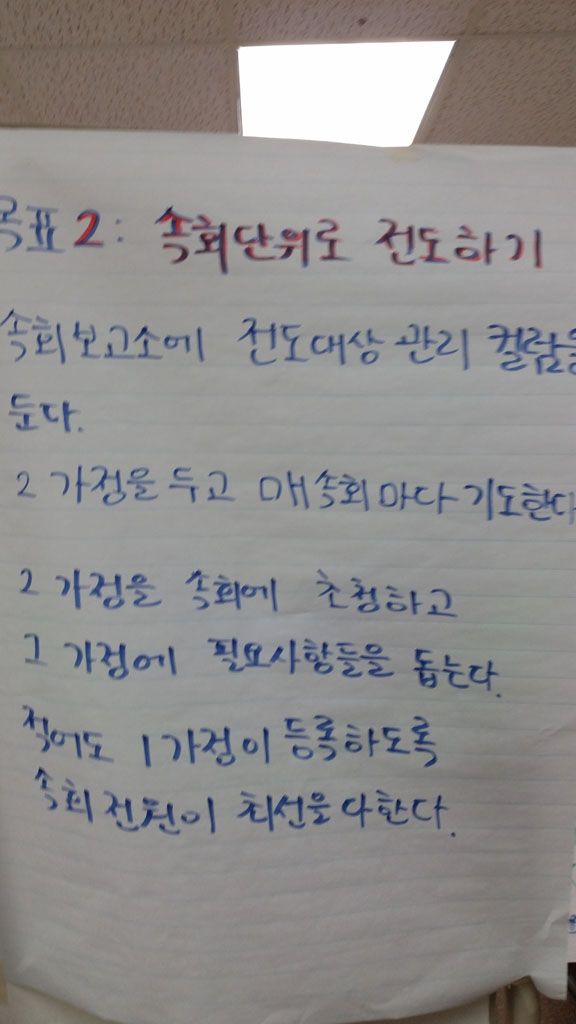 목표 2: 속회단위로 전도하기
속회보고소에 전도대상 관리 컬럼을
둔다.
2 가정을 두고 매속회마다 기도한다
2 가정을 속회에 초청하고
그 가정에 필요사항들을 돕는다.
적어도 1가정이 등록하도록
속회전원이 최선을 다한다.